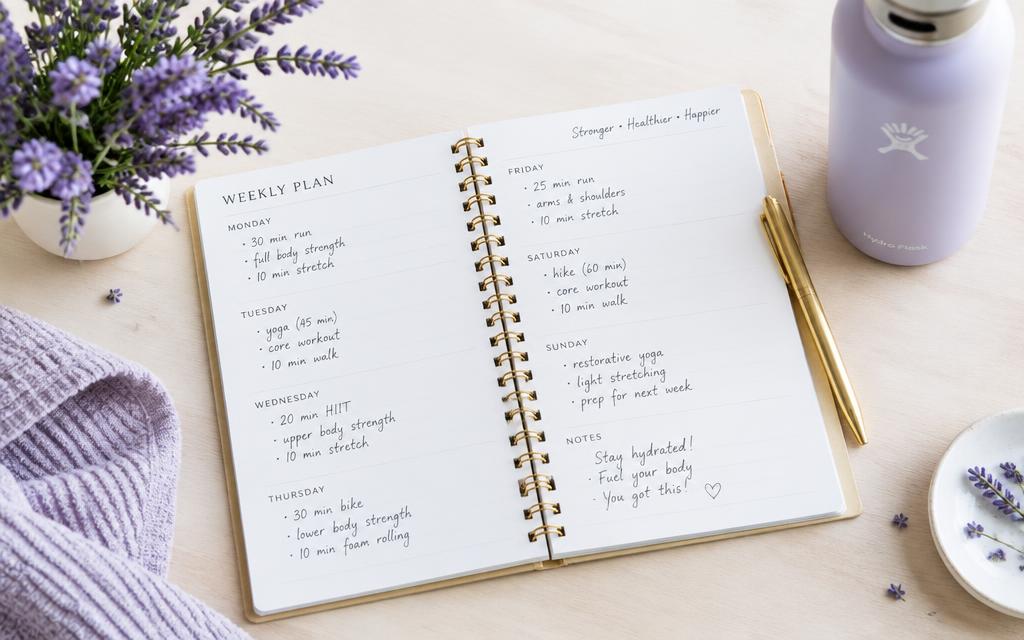 WEEKLY PLAN
MONDAY
· 30 min run
· full body strength
· 10 min stretch
TUESDAY
· yoga (45 min)
· core workout
· 10 min walk
WEDNESDAY
· 20 min HIIT
· upper body strength
· 10 min stretch
THURSDAY
· 30 min bike
· lower body strength
· 10 min foam rolling
Stronger · Healthier · Happier
FRIDAY
· 25 min run
· arms & shoulders
· 10 min stretch
SATURDAY
· hike (60 min)
· core workout
· 10 min walk
SUNDAY
· restorative yoga
· light stretching
· prep for next week
NOTES
Stay hydrated!
· Fuel your body
· You got this! ♡
Hydro Flask